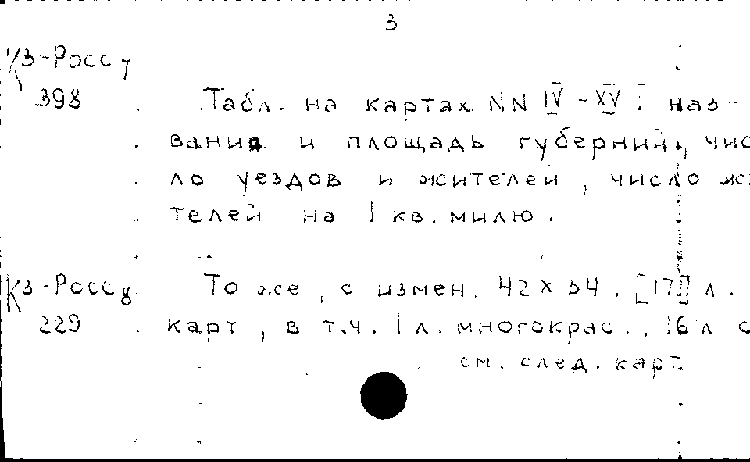 3
К3-Росс 7
398 Табл. на картах NN IV-XV: наз-
вания и площадь губерний, чис
ло уездов и жителей, число жи
телей на 1 кв. милю.
К3-Росс 8 То же, с измен. 42х54. [17] л.
229 карт, в т.ч. 1 л. многокрас., 16 л с
см. след. карт.